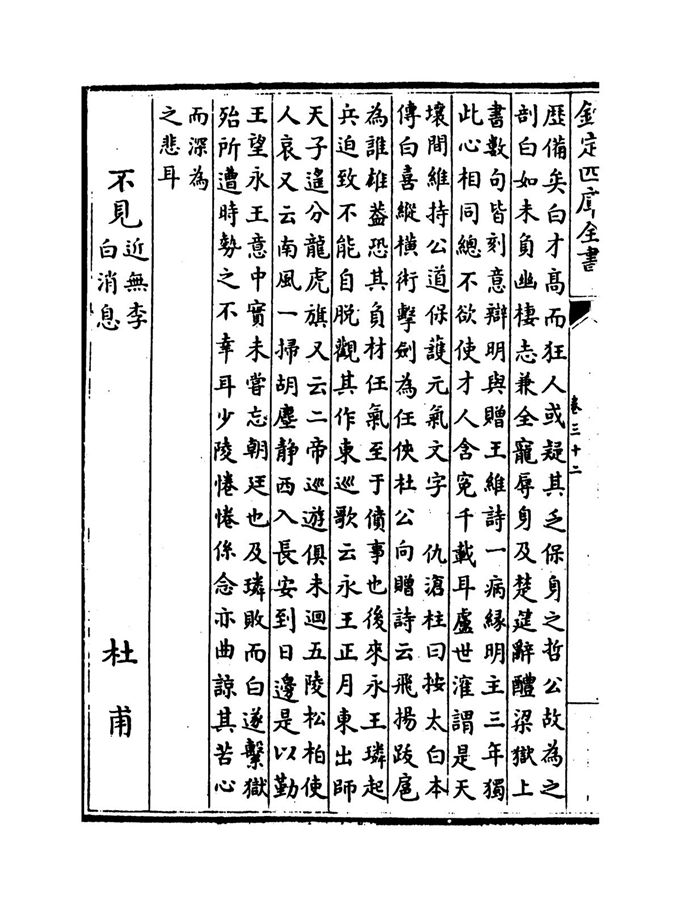 欽定四庫全書
卷三十二
歷備矣白才高而狂人或疑其乏保身之哲公故為之
剖白如未負幽棲志兼全寵辱身及楚筵辭醴梁獄上
書數句皆刻意辯明與贈王維詩一病緣明主三年獨
此心相同總不欲使才人含冤千載耳盧世㴶謂是天
壤間維持公道保䕶元氣文字 仇滄柱曰按太白本
傳白喜縱横術擊劍為任俠杜公向贈詩云飛揚跋扈
為誰雄葢恐其負材任氣至于僨事也後來永王璘起
兵迫致不能自脱觀其作東巡歌云永王正月東出師
天子遙分龍虎旗又云二帝巡遊俱未迴五陵松柏使
人哀又云南風一掃胡塵静西入長安到日邊是以勤
王望永王意中實未嘗忘朝廷也及璘敗而白遂繫獄
殆所遭時勢之不幸耳少陵惓惓係念亦曲諒其苦心
而深為
之悲耳
不見近無李
白消息
杜甫